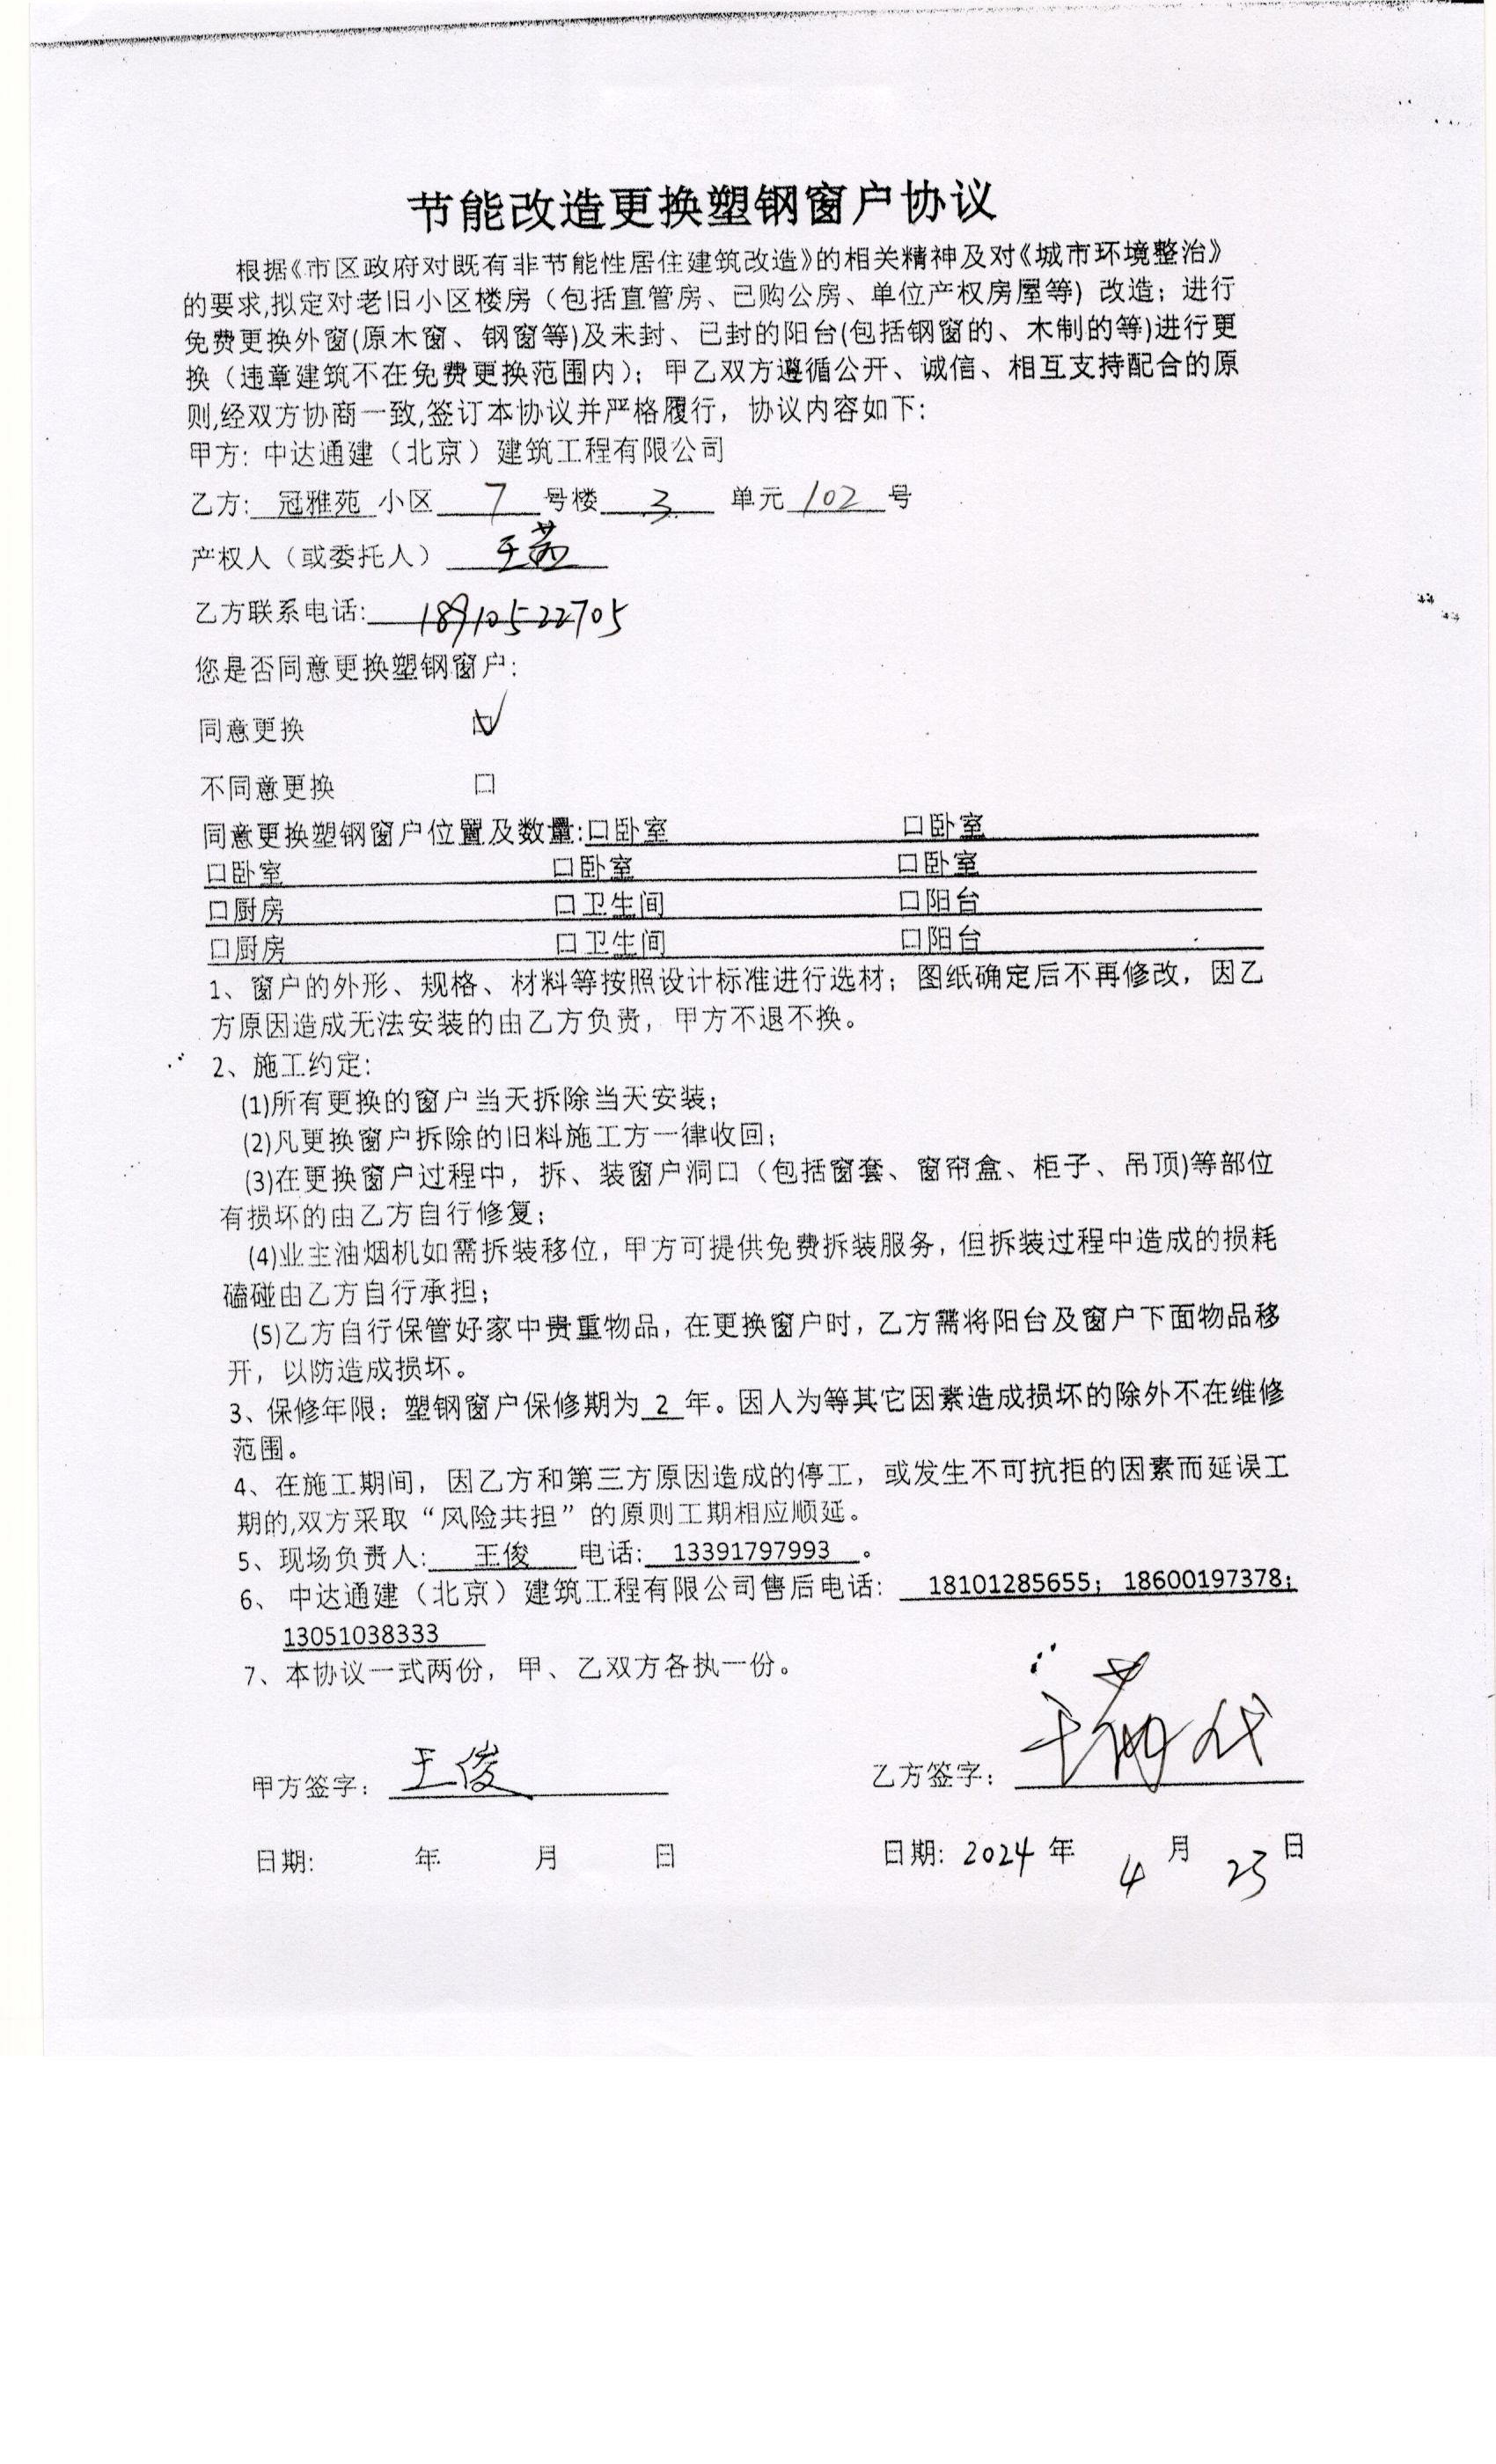 节能改造更换塑钢窗户协议
根据《市区政府对既有非节能性居住建筑改造》的相关精神及对《城市环境整治》
的要求,拟定对老旧小区楼房（包括直管房、已购公房、单位产权房屋等）改造；进行
免费更换外窗(原木窗、钢窗等)及未封、已封的阳台(包括钢窗的、木制的等)进行更
换（违章建筑不在免费更换范围内）；甲乙双方遵循公开、诚信、相互支持配合的原
则,经双方协商一致,签订本协议并严格履行，协议内容如下:
甲方: 中达通建（北京）建筑工程有限公司
乙方: 冠雅苑 小区 7 号楼 3 单元 102 号
产权人（或委托人）
乙方联系电话: 18910522705
您是否同意更换塑钢窗户:
同意更换 ☑
不同意更换 口
同意更换塑钢窗户位置及数量:口卧室 口卧室
口卧室 口卧室 口卧室
口厨房 口卫生间 口阳台
口厨房 口卫生间 口阳台
1、窗户的外形、规格、材料等按照设计标准进行选材；图纸确定后不再修改，因乙
方原因造成无法安装的由乙方负责，甲方不退不换。
2、施工约定:
(1)所有更换的窗户当天拆除当天安装；
(2)凡更换窗户拆除的旧料施工方一律收回；
(3)在更换窗户过程中，拆、装窗户洞口（包括窗套、窗帘盒、柜子、吊顶)等部位
有损坏的由乙方自行修复；
(4)业主油烟机如需拆装移位，甲方可提供免费拆装服务，但拆装过程中造成的损耗
磕碰由乙方自行承担；
(5)乙方自行保管好家中贵重物品，在更换窗户时，乙方需将阳台及窗户下面物品移
开，以防造成损坏。
3、保修年限：塑钢窗户保修期为 2 年。因人为等其它因素造成损坏的除外不在维修
范围。
4、在施工期间，因乙方和第三方原因造成的停工，或发生不可抗拒的因素而延误工
期的,双方采取“风险共担”的原则工期相应顺延。
5、现场负责人: 王俊 电话: 13391797993 。
6、中达通建（北京）建筑工程有限公司售后电话: 18101285655；18600197378；
13051038333
7、本协议一式两份，甲、乙双方各执一份。
甲方签字： 王俊 乙方签字： 代
日期: 年 月 日 日期: 2024 年 4 月 23 日